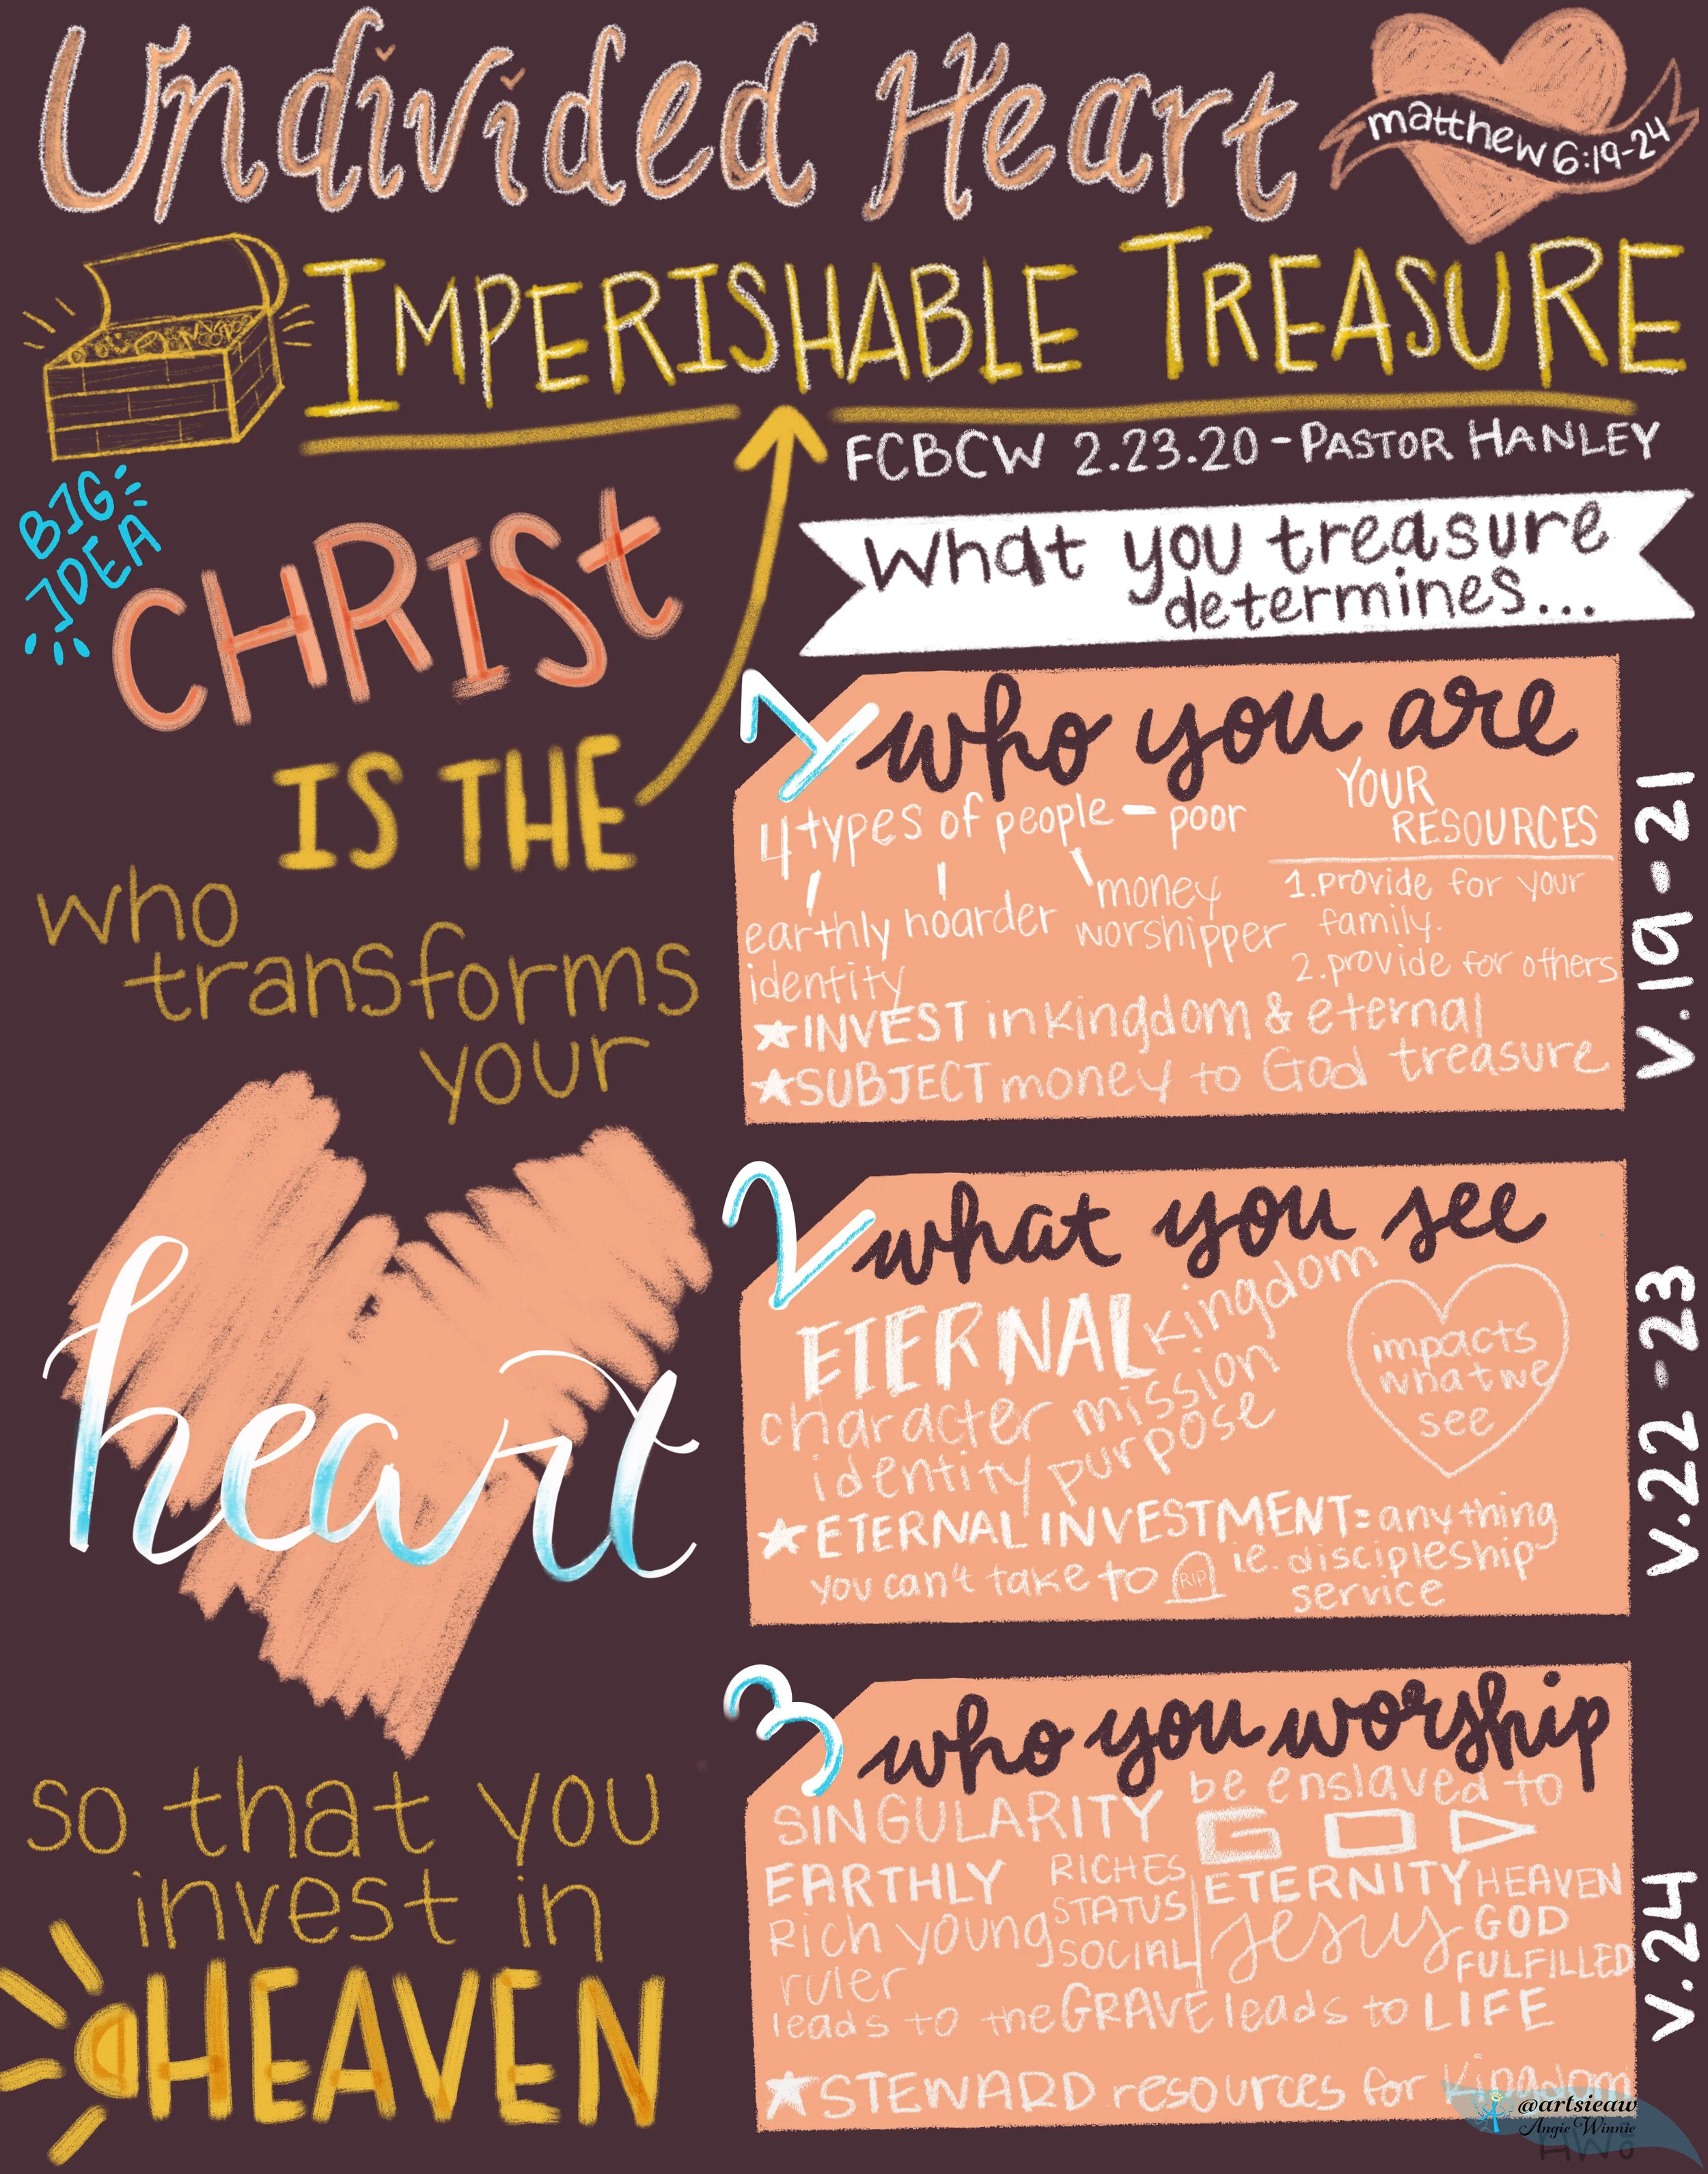 Undivided Heart
matthew 6:19-24
IMPERISHABLE TREASURE
FCBCW 2.23.20 - PASTOR HANLEY
BIG
IDEA
CHRIST
IS THE
who
transforms
your
heart
so that you
invest in
HEAVEN
What you treasure
determines...
1 who you are
4 types of people - poor
earthly
identity
hoarder
money
worshipper
YOUR
RESOURCES
1. provide for your
family.
2. provide for others
★ INVEST in kingdom & eternal
treasure
★ SUBJECT money to God
v.19-21
2 what you see
ETERNAL kingdom
character mission
identity purpose
impacts
what we
see
★ ETERNAL INVESTMENT = anything
you can't take to RIP ie. discipleship
service
v.22-23
3 who you worship
SINGULARITY be enslaved to
GOD
EARTHLY RICHES
STATUS
SOCIAL
Rich young
ruler
leads to the GRAVE
ETERNITY HEAVEN
Jesus GOD
FULFILLED
leads to LIFE
★ STEWARD resources for kingdom
v.24
@artsieaw
Angie Winnie